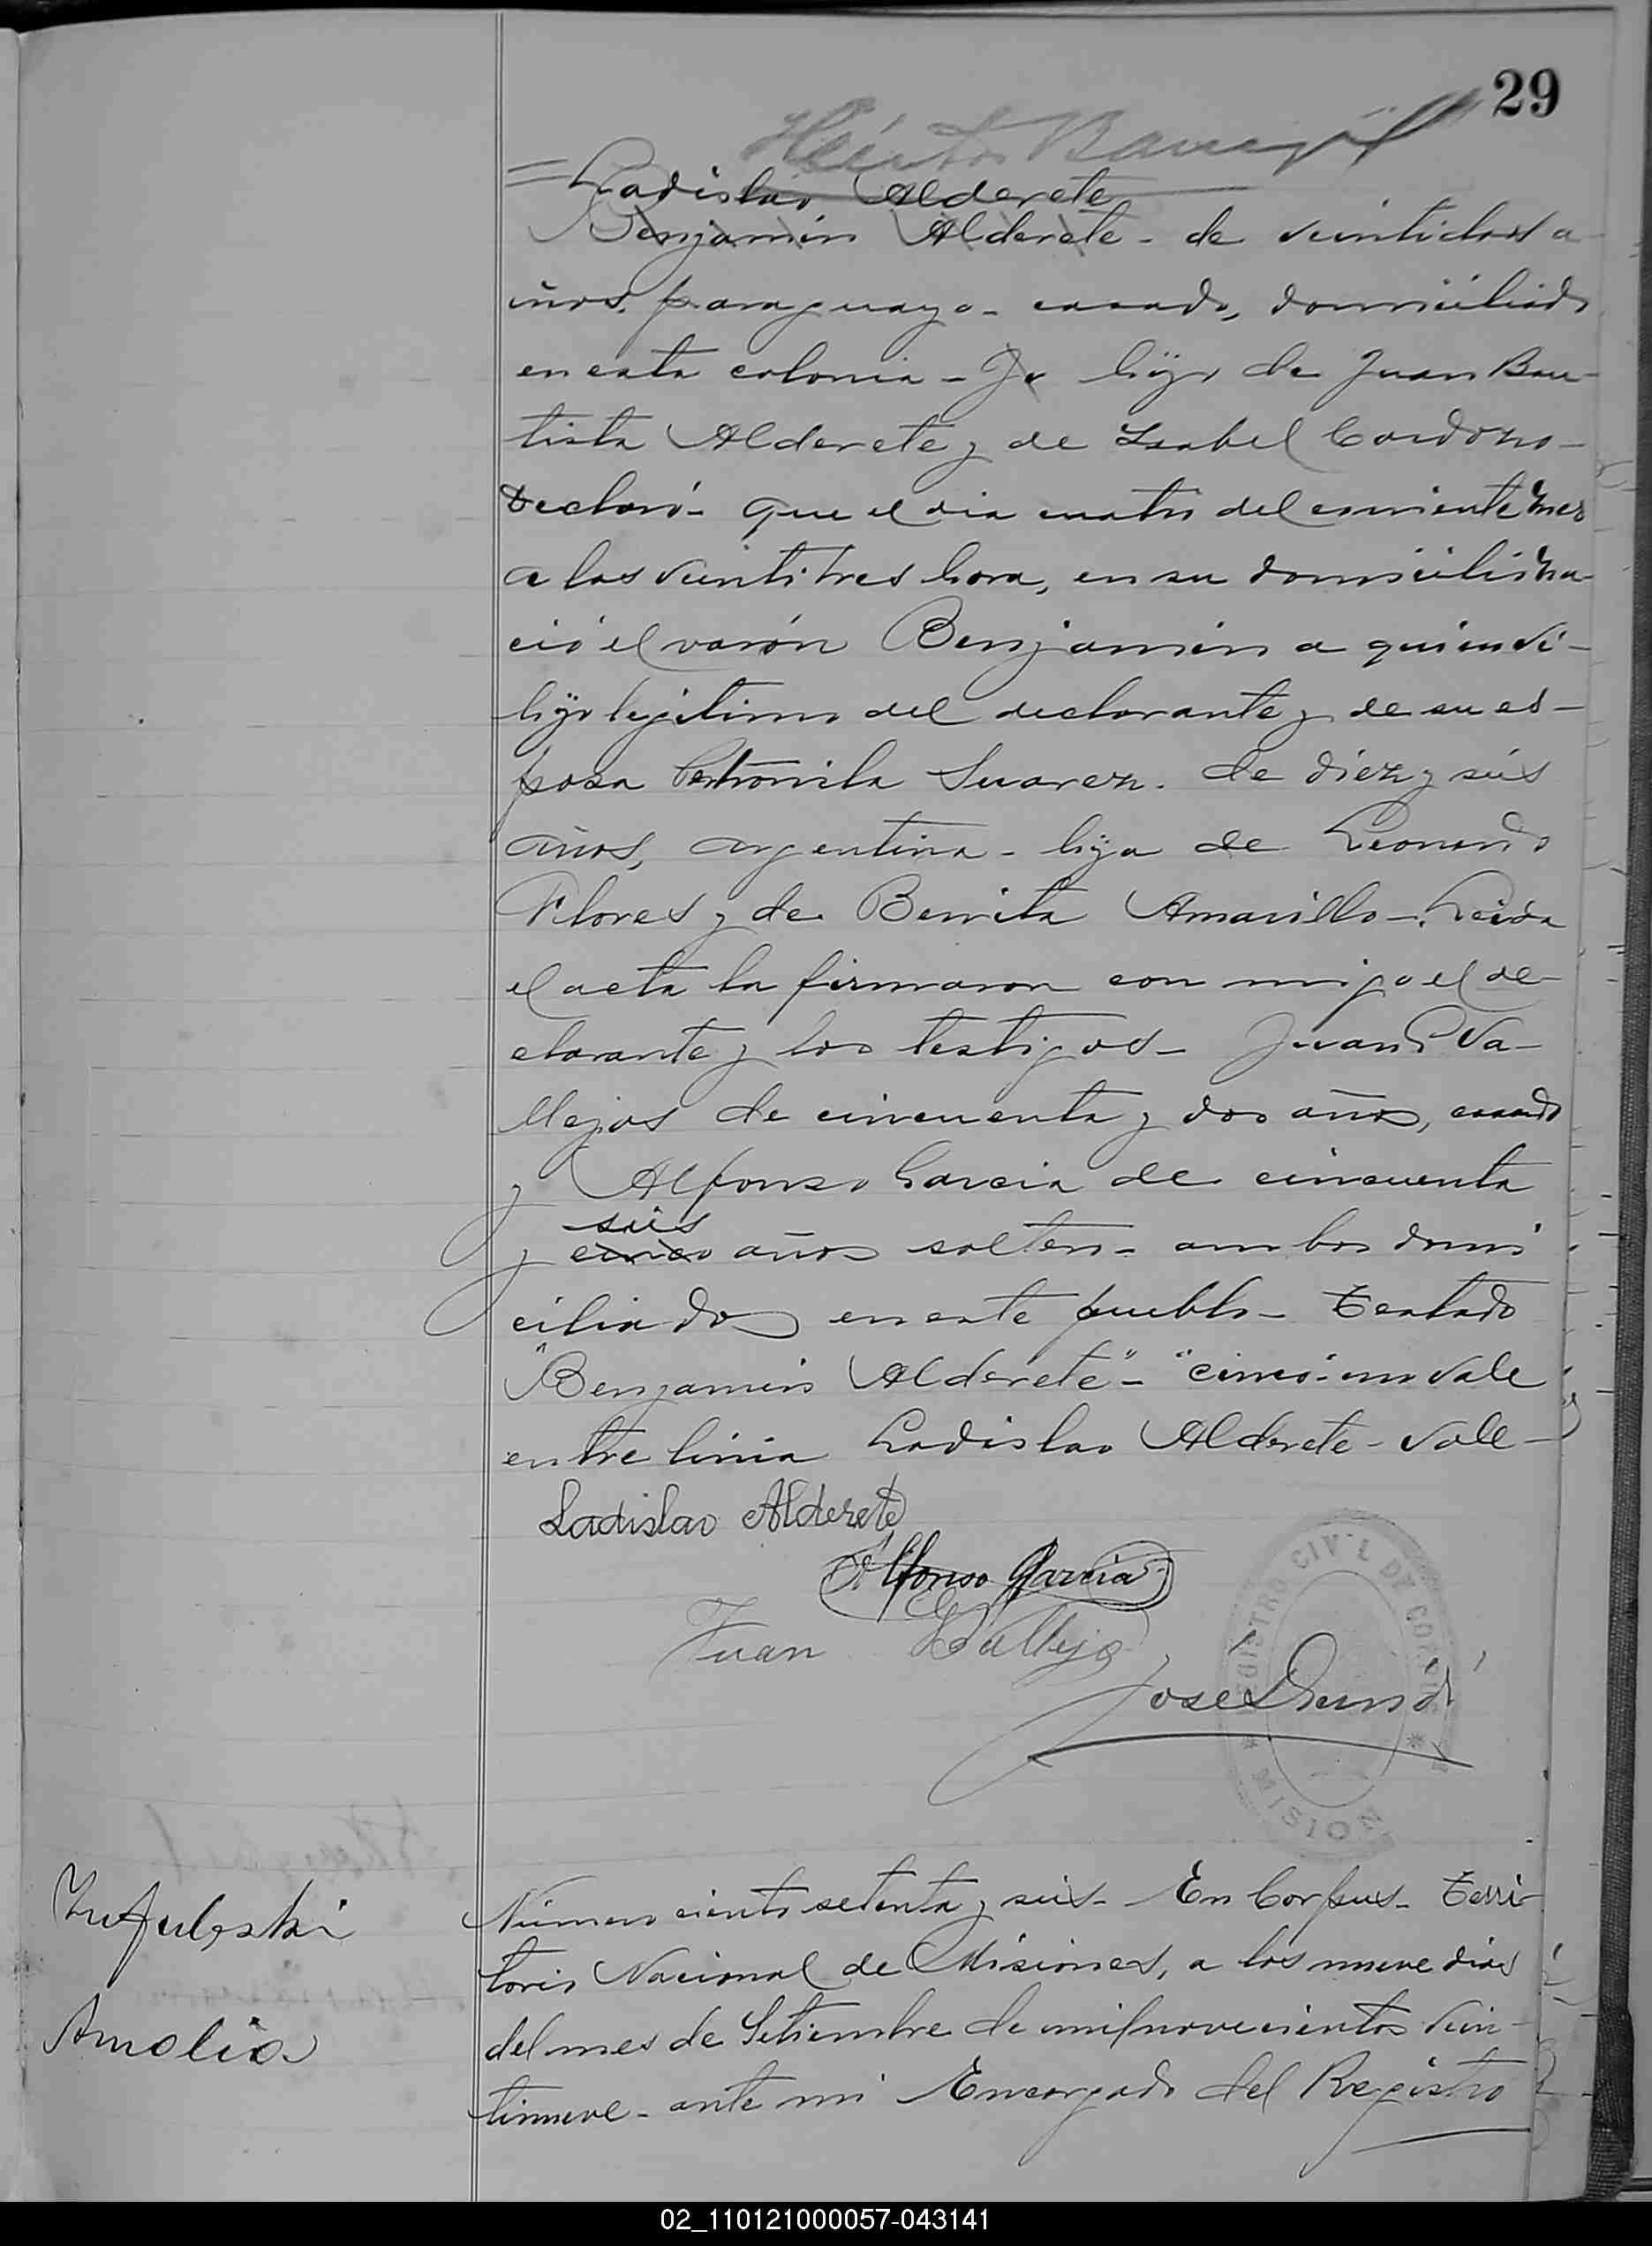 29
Ladislao Alderete
Benjamin Alderete - de veintidos a-
ños, paraguayo - casado, domiciliado
en esta colonia - Jo hijo de Juan Bau-
tista Alderete y de Isabel Cardozo -
Declaró - que el dia cuatro del corriente mes
a las veintitres hora, en su domicilio na-
ció el varón Benjamin a quien ví -
hijo legitimo del declarante y de su es-
posa Petronila Suarez. de diez y seis
años, argentina - hija de Leonardo
Flores y de Benita Amarillo - Leida
el acta la firmaron con migo el de-
clarante y los testigos - Juan Va-
llejos de cincuenta y dos años, casado
y Alfonso Garcia de cincuenta
seis
y cinco años soltero - ambos domi
ciliados en este pueblo - Testado
"Benjamin Alderete" - "cinco" - no vale
entre linia Ladislao Alderete - vale -
Ladislao Alderete
Alfonso Garcia
Juan Vallejo
José
REGISTRO CIVIL DE CORPUS
* MISIONES *
Amalia
Número ciento setenta y seis - En Corpus - Terri
torio Nacional de Misiones, a los nueve dias
del mes de Setiembre de mil novecientos vein-
tinueve - ante mi Encargado del Registro
02_110121000057-043141